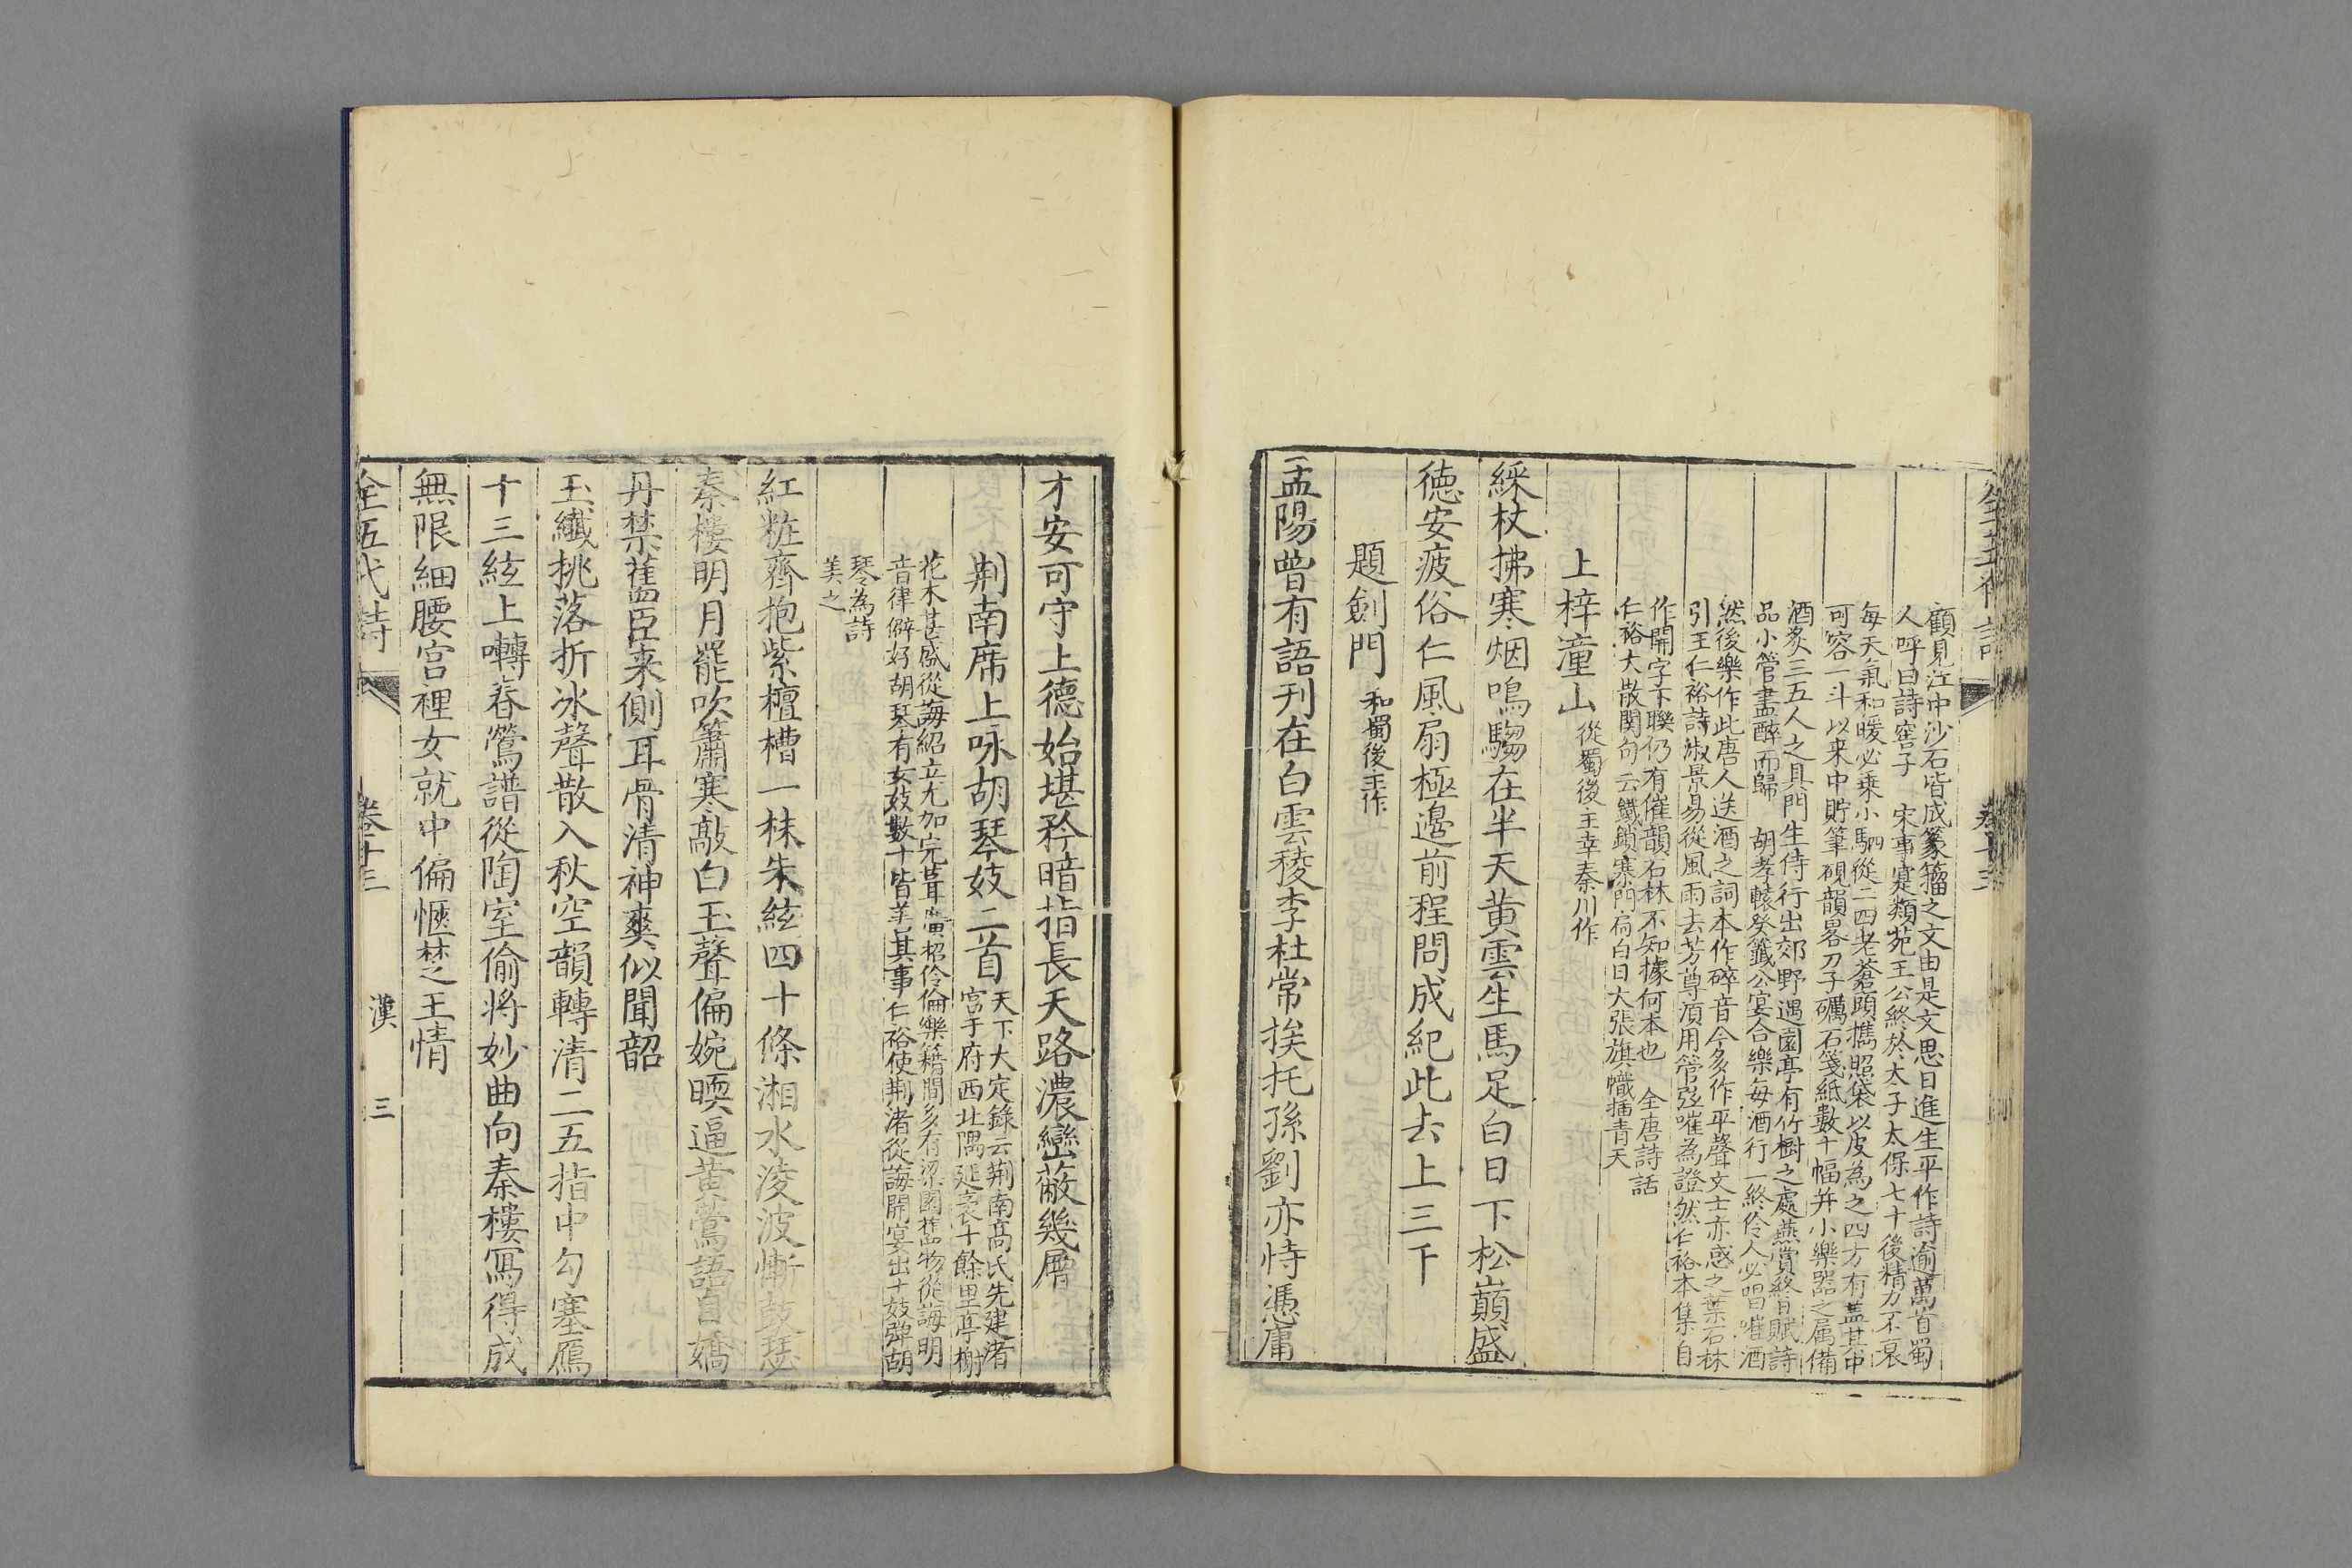 顧見江中沙石皆成篆籀之文由是文思日進生平作詩逾萬首蜀
人呼曰詩窖子　宋事寔類苑王公終於太子太保七十後精力不衰
每天氣和暖必乗小駟從二四老蒼頭攜照袋以皮為之四方有盖其中
可容一斗以来中貯筆硯韻畧刀子礪石箋紙數十幅并小樂器之属備
酒炙三五人之具門生侍行出郊野遇園亭有竹樹之處燕賞終日賦詩
品小管盡醉而歸　胡孝轅癸籖公宴合樂每酒行一終伶人必唱嗺酒
然後樂作此唐人送酒之詞本作碎音今多作平聲文士亦惑之葉石林
引王仁裕詩淑景易從風雨去芳尊須用管弦嗺為證然仁裕本集自
作開字下聨仍有催韻石林不知據何本也　全唐詩話
仁裕大散関句云鐵鎖寨門扃白日大張旗幟插青天
上梓潼山 從蜀後主幸秦川作
綵杖拂寒烟鳴騶在半天黄雲生馬足白日下松巔盛
徳安疲俗仁風扇極邉前程問成紀此去上三千
題劍門 和蜀後主作
孟陽曾有語刊在白雲稜李杜常挨托孫劉亦恃憑庸
才安可守上德始堪矜暗指長天路濃巒蔽幾層
荆南席上咏胡琴妓二首 天下大定錄云荆南髙氏先建渚
宫于府西北隅延袤十餘里亭榭
花木甚盛從誨紹立尤加完葺廣招伶倫樂籍間多有梁園舊物從誨明
音律僻好胡琴有女妓數十皆善其事仁裕使荆渚從誨開宴出十妓彈胡
琴為詩
美之
紅粧齊抱紫檀槽一抹朱絃四十條湘水凌波慚鼓瑟
秦樓明月罷吹簫寒敲白玉聲偏婉暝逼黄鶯語自嬌
丹禁舊臣来側耳骨清神爽似聞韶
玉纖挑落折冰聲散入秋空韻轉清二五指中勾塞鴈
十三絃上囀春鶯譜從陶室偷將妙曲向秦樓冩得成
無限細腰宫裡女就中偏愜楚王情
全五代詩　卷十三　漢　三